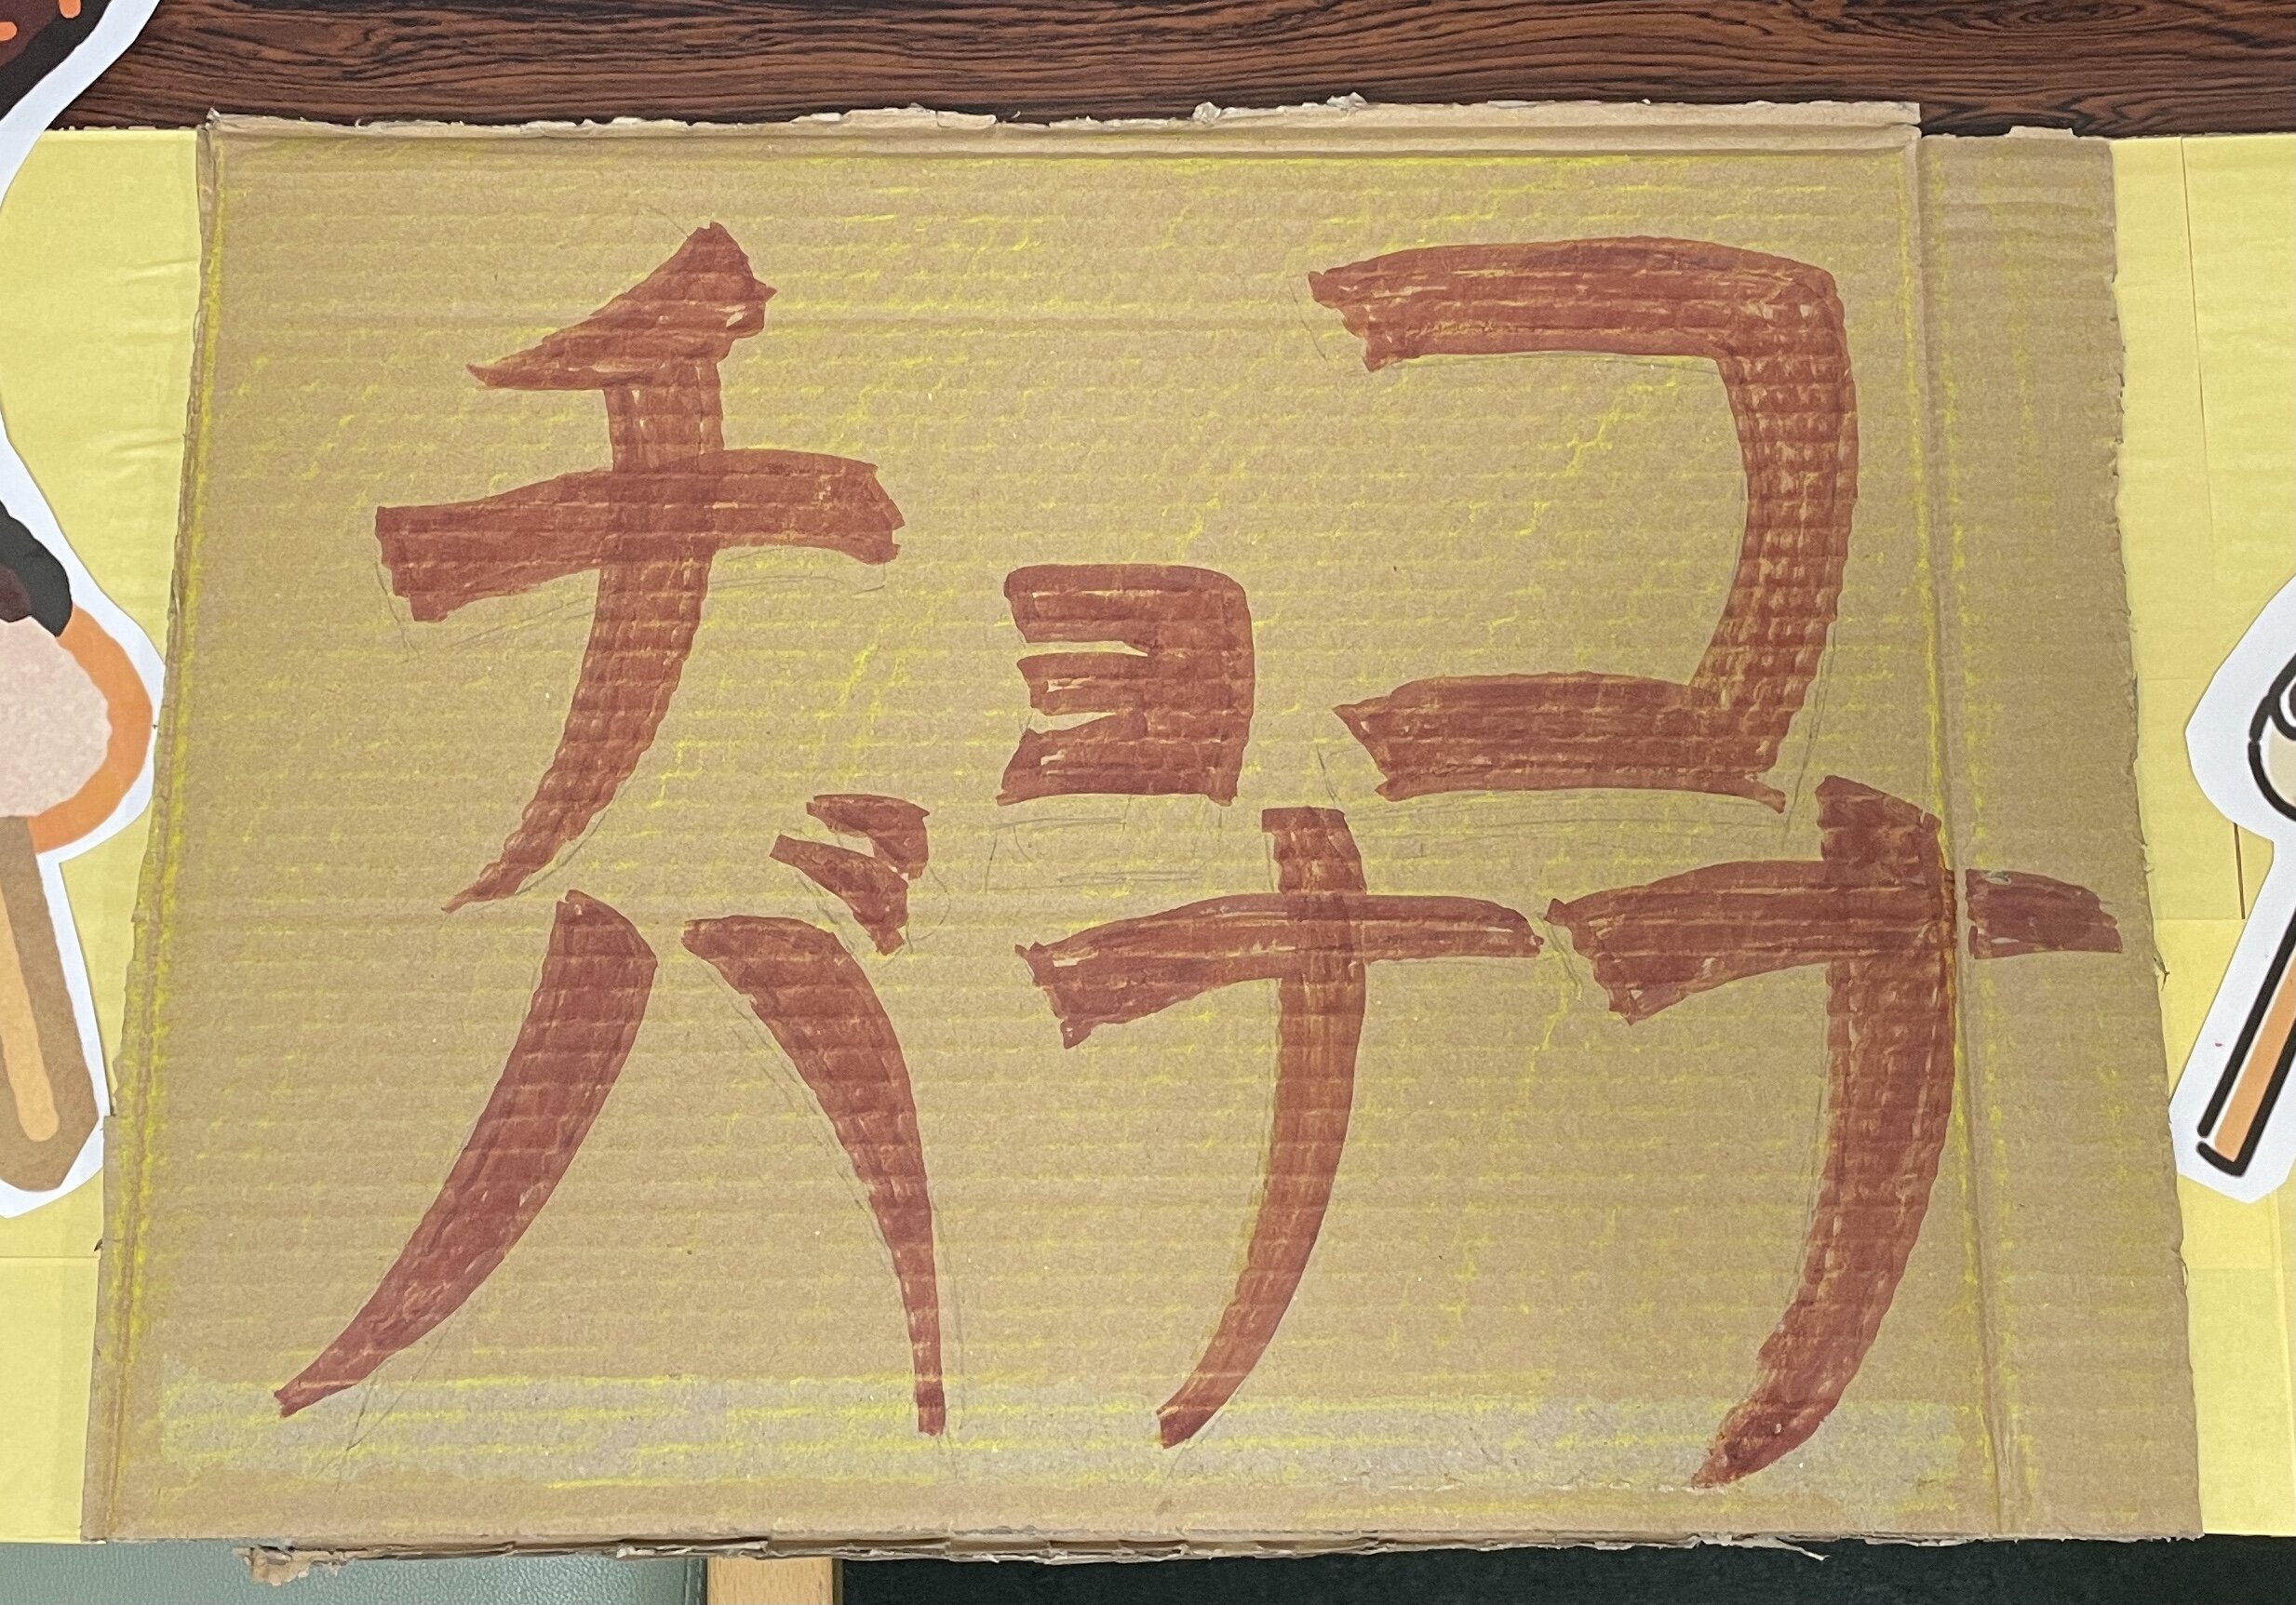 チョコ
バナナ